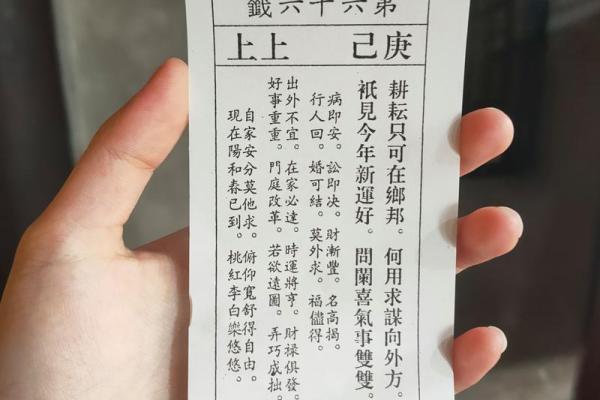 第六十六籤
庚己 上上
耕耘只可在鄉邦。何用求謀向外方。
祇見今年新運好。問闌喜氣事雙雙。
病即安。訟即決。財漸豐。名高揭。
行人回。婚可結。莫外求。福儘得。
出外不宜。在家必達。時運將亨。財祿俱發。
好事重重。門庭改革。若欲遠圖。弄巧成拙。
自家安分莫他求。俯仰寬舒得自由。
現在陽和春已到。桃紅李白樂悠悠。